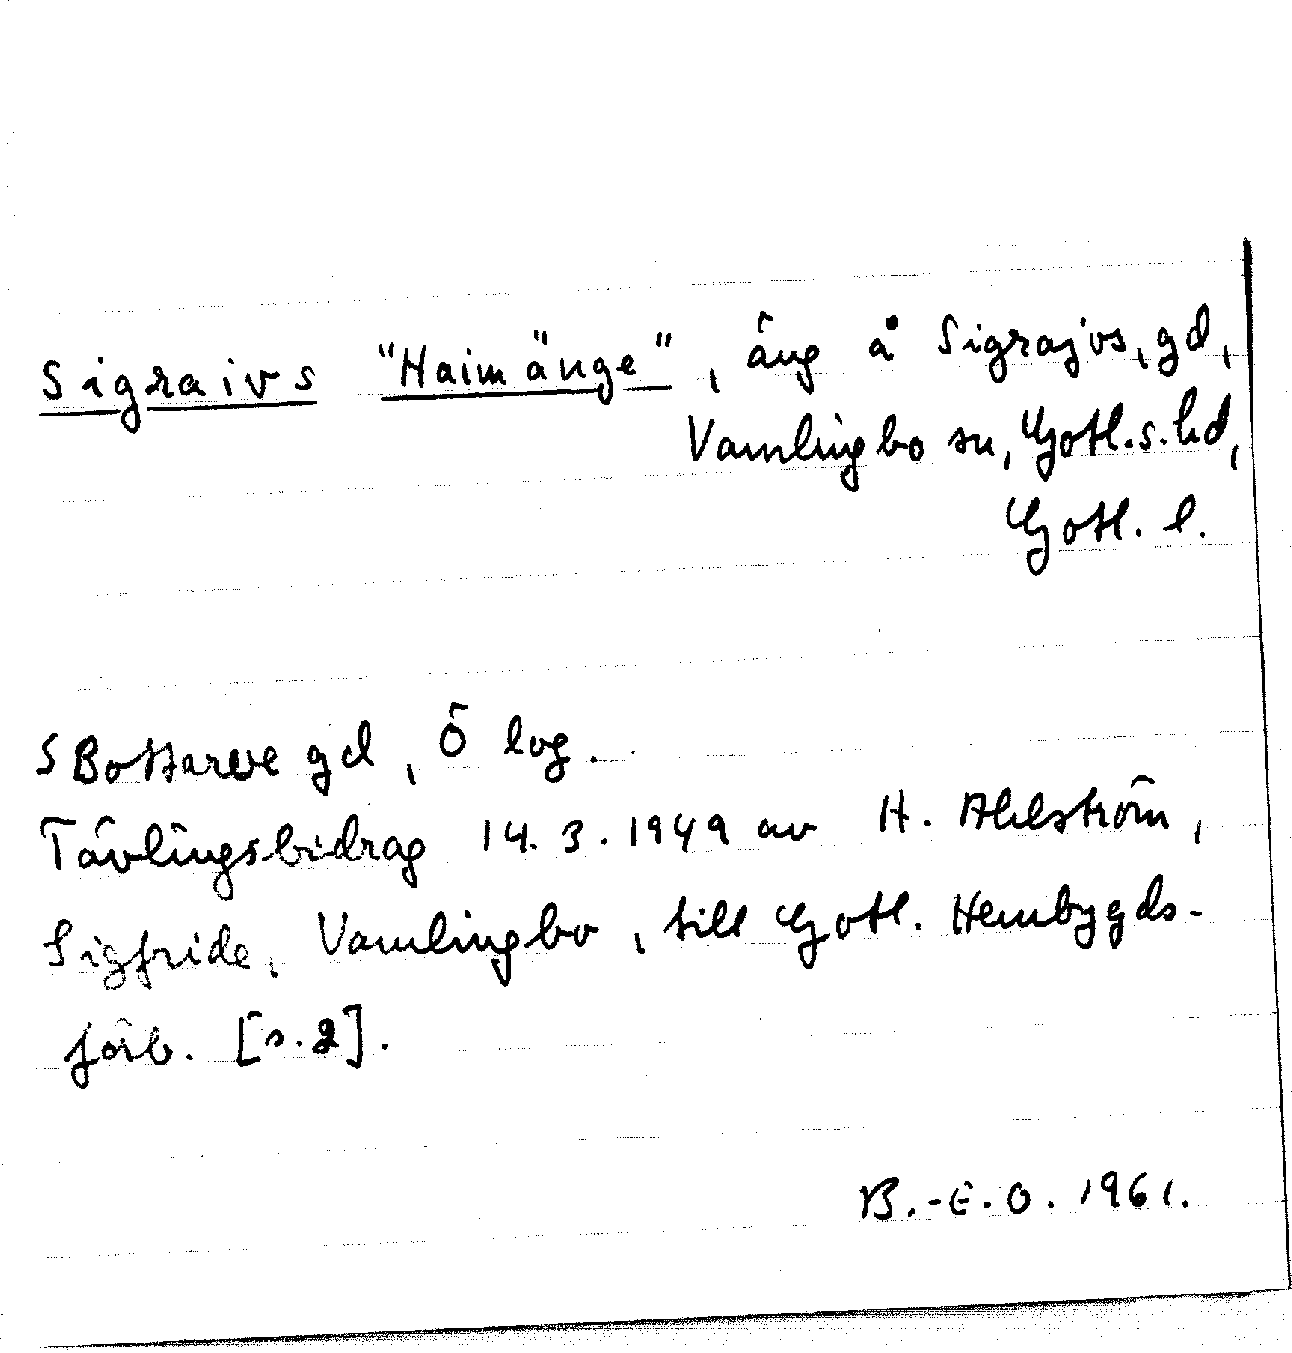 Sigraivs "Haimänge", äng å Sigrajvs, gd,
Vamlingbo sn, Gotl. s. hd,
Gotl. l.
S Bottarve gd, Ö log.
Tävlingsbidrag 14.3.1949 av H. Ahlström,
Sigfride, Vamlingbo, till Gotl. Hembygds-
förb. [s. 2].
B.-E.O. 1961.